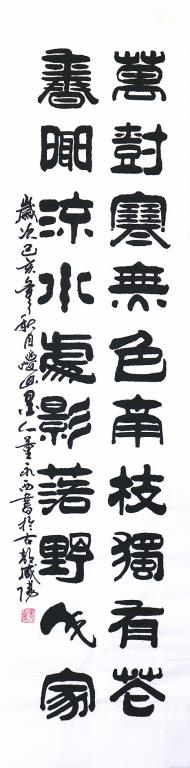 萬樹寒無色南枝獨有花
香聞流水處影落野人家
歲次己亥年秋月灃西墨人董永西書於古都咸陽